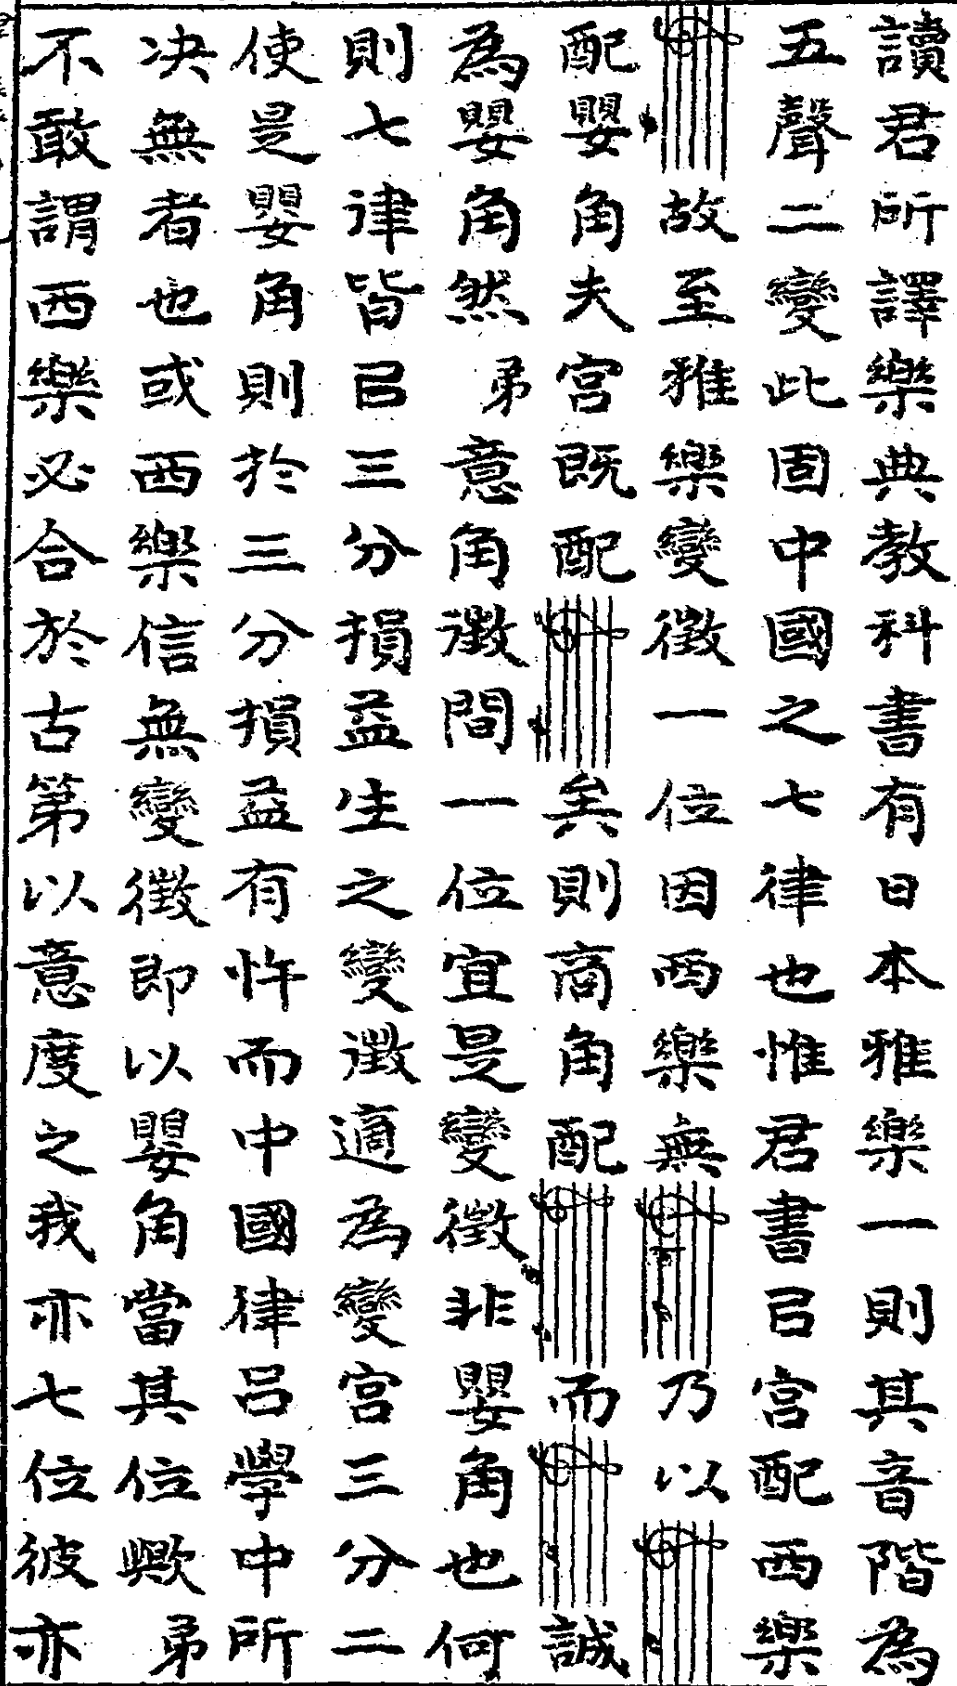 讀君所譯樂典教科書有日本雅樂一則其音階為
五聲二變此固中國之七律也惟君書㠯宮配西樂
故至雅樂變徵一位因西樂無乃以
配嬰角夫宮既配矣則商角配而誠
為嬰角然弟意角徵間一位宜是變徵非嬰角也何
則七律皆㠯三分損益生之變徵適為變宮三分二
使是嬰角則於三分損益有忤而中國律呂學中所
决無者也或西樂信無變徵即以嬰角當其位歟弟
不敢謂西樂必合於古第以意度之我亦七位彼亦